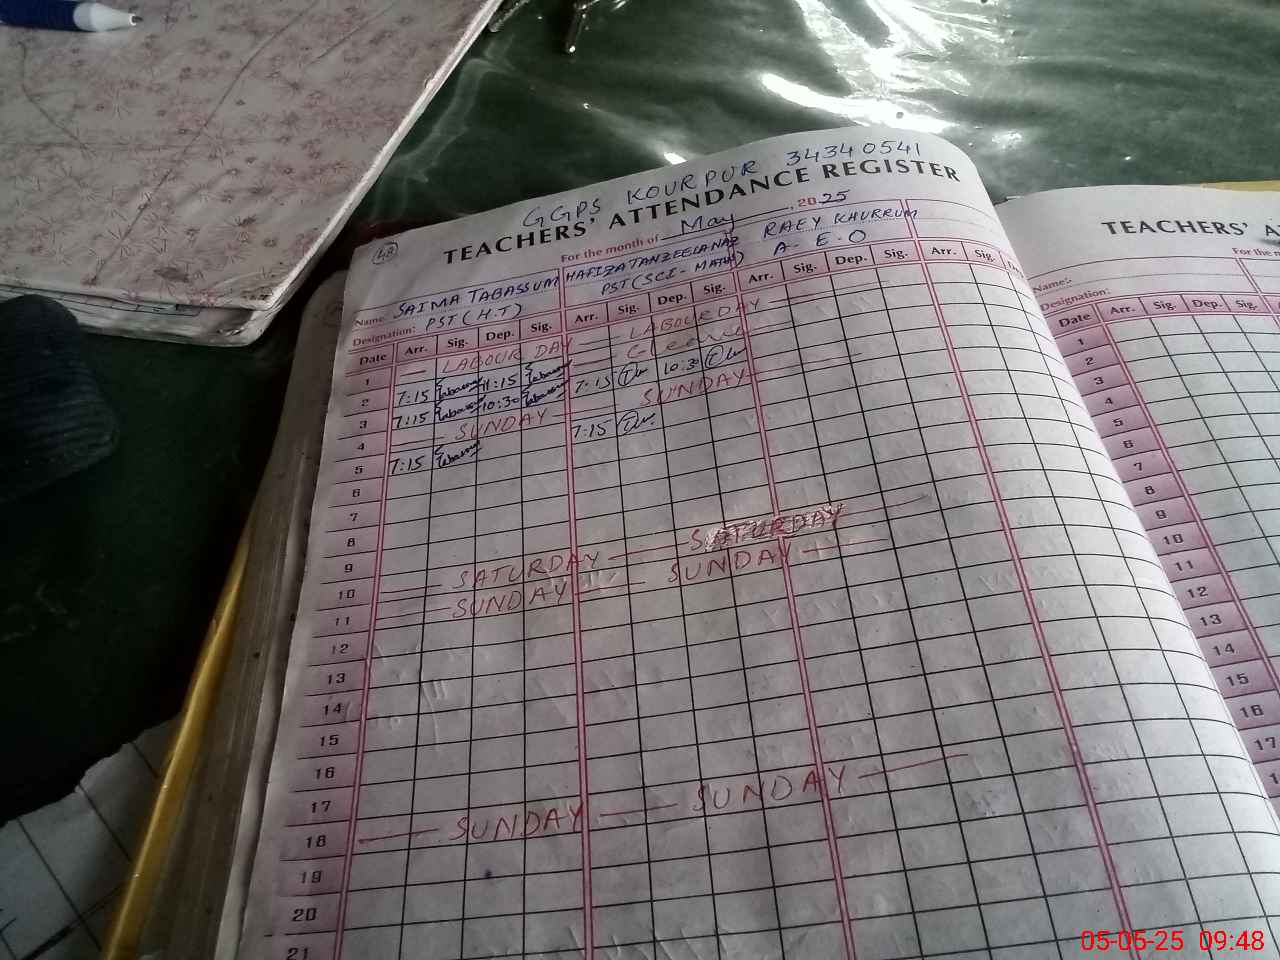 GGPS KOURPUR 34340541
48 TEACHERS' ATTENDANCE REGISTER
For the month of May, 2025
Name: SAIMA TABASSUM HAFIZA TANZEELA NAZ RAEY KHURRUM
Designation: PST (H.T) PST (SCI-MATH) A.E.O
Date Arr. Sig. Dep. Sig. Arr. Sig. Dep. Sig. Arr. Sig. Dep. Sig. Arr. Sig.
1 — LABOUR DAY — LABOUR DAY —
2 7:15 11:15
3 7:15 10:30 7:15 10:3
4 — SUNDAY — SUNDAY —
5 7:15 7:15
6
7
8
9
10 — SATURDAY — SATURDAY —
11 — SUNDAY — SUNDAY —
12
13
14
15
16
17
18 — SUNDAY — SUNDAY —
19
20
21
TEACHERS'
For the
Name:-
Designation:
Date Arr. Sig. Dep. Sig. Arr.
1
2
3
4
5
6
7
8
9
10
11
12
13
14
15
16
17
05-05-25 09:48